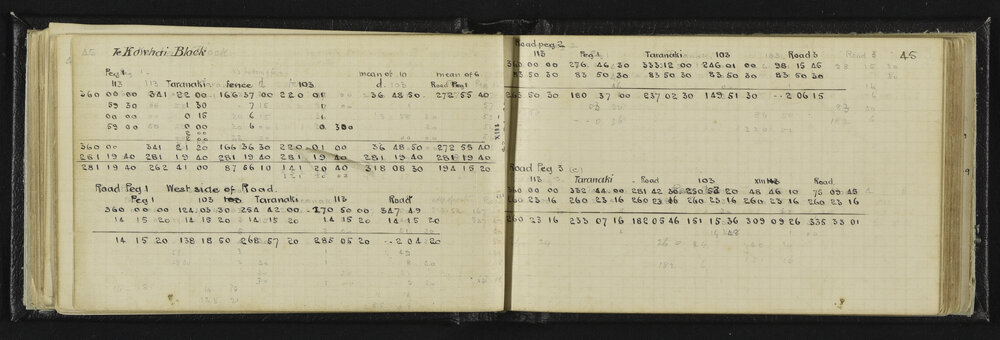 45 Te Kowhai Block
Peg 1 mean of 10 mean of 6
113 Taranaki fence 103 d. 103 Road Peg 1
360 00 00 341 22 00 166 37 00 220 01 36 48 50 272 55 40
59 30 1 30 7
00 00 0 15 6
59 00 0 00 6 0 300
360 00 341 21 20 166 36 30 220 01 00 36 48 50 272 55 40
281 19 40 281 19 40 281 19 40 281 19 40 281 19 40 281 19 40
281 19 40 262 41 00 87 56 10 141 20 40 318 08 30 194 15 20
Road Peg 1 West side of Road.
Peg 1 103 Taranaki 113 Road
360 00 00 124 03 30 254 42 00 270 50 00 347 49
14 15 20 14 15 20 14 15 20 14 15 20 14 15 20
14 15 20 138 18 50 268 57 20 285 05 20 2 04 20
Road peg 2 45
113 Peg 1 Taranaki 103 Road 3
360 00 00 276 46 30 333 12 00 246 01 00 98 15 45
83 50 30 83 50 30 83 50 30 83 50 30 83 50 30
263 50 30 180 37 00 237 02 30 149 51 30 2 06 15
Road Peg 3 (c)
113 Taranaki Road 103 XIII Road
360 00 00 332 44 00 281 42 36 250 53 20 48 46 10 75 09 45
260 23 16 260 23 16 260 23 16 260 23 16 260 23 16 260 23 16
260 23 16 233 07 16 182 05 46 151 15 36 309 09 26 335 33 01